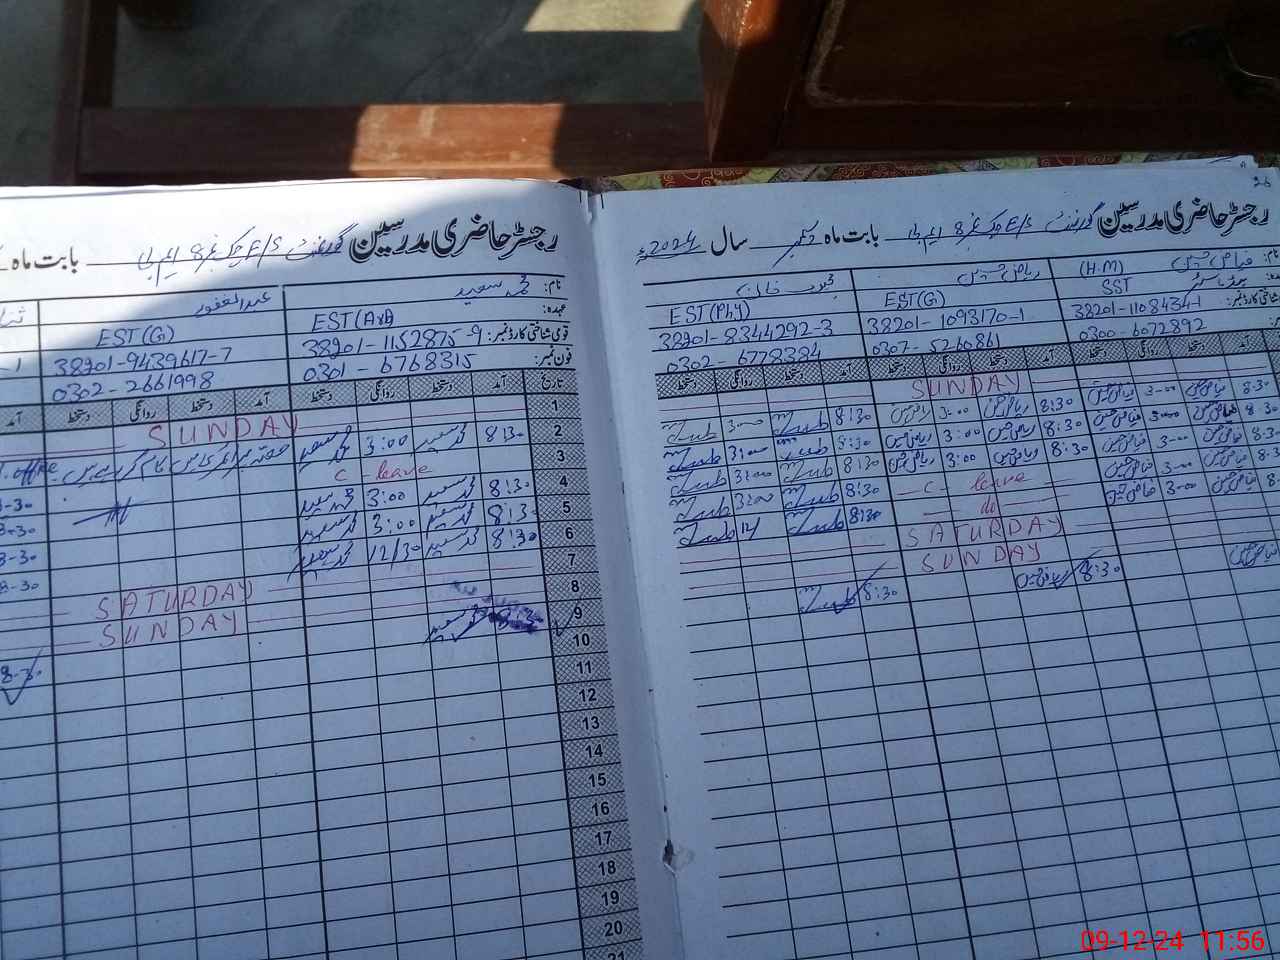 26
رجسٹر حاضری مدرسین گورنمنٹ E/S چک نمبر 8 ایم بی بابت ماہ دسمبر سال 2024ء
نام: فیاض حسین (H.M) ریاض حسین محبوب خان
SST EST(G) EST(Phy)
38201-1108434-1 38201-1093170-1 38201-8344292-3
0300-6072892 0307-5260861 0302-6778384
آمد دستخط روانگی دستخط آمد دستخط روانگی دستخط آمد دستخط روانگی دستخط
SUNDAY
8:30 فیاض حسین 3:00 فیاض حسین 8:30 ریاض حسین 3:00 ریاض حسین 8:30 3:00
8:30 فیاض حسین 3:00 فیاض حسین 8:30 ریاض حسین 3:00 ریاض حسین 8:30 3:00
8:30 فیاض حسین 3:00 فیاض حسین 8:30 ریاض حسین 3:00 ریاض حسین 8:30 3:00
8:30 فیاض حسین 3:00 فیاض حسین C - leave 8:30 3:00
do 8:30 12/
SATURDAY
SUNDAY
فیاض حسین 8:30 ریاض حسین 8:30
رجسٹر حاضری مدرسین گورنمنٹ E/S چک نمبر 8 ایم بی بابت ماہ
نام: محمد سعید عبدالغفور
عہدہ: EST(Arb) EST(G)
قومی شناختی کارڈ نمبر: 38201-1152875-9 38201-9439617-7
فون نمبر: 0301-6768315 0302-2661998
تاریخ آمد دستخط روانگی دستخط آمد دستخط روانگی دستخط آمد
1 SUNDAY
2 8:30 محمد سعید 3:00 محمد سعید
3 C - leave
4 8:30 محمد سعید 3:00 محمد سعید
5 8:30 محمد سعید 3:00 محمد سعید
6 8:30 محمد سعید 12/30 محمد سعید
7 SATURDAY
8 SUNDAY
9 8:30 محمد سعید
10
11
12
13
14
15
16
17
18
19
20
21
09-12-24 11:56